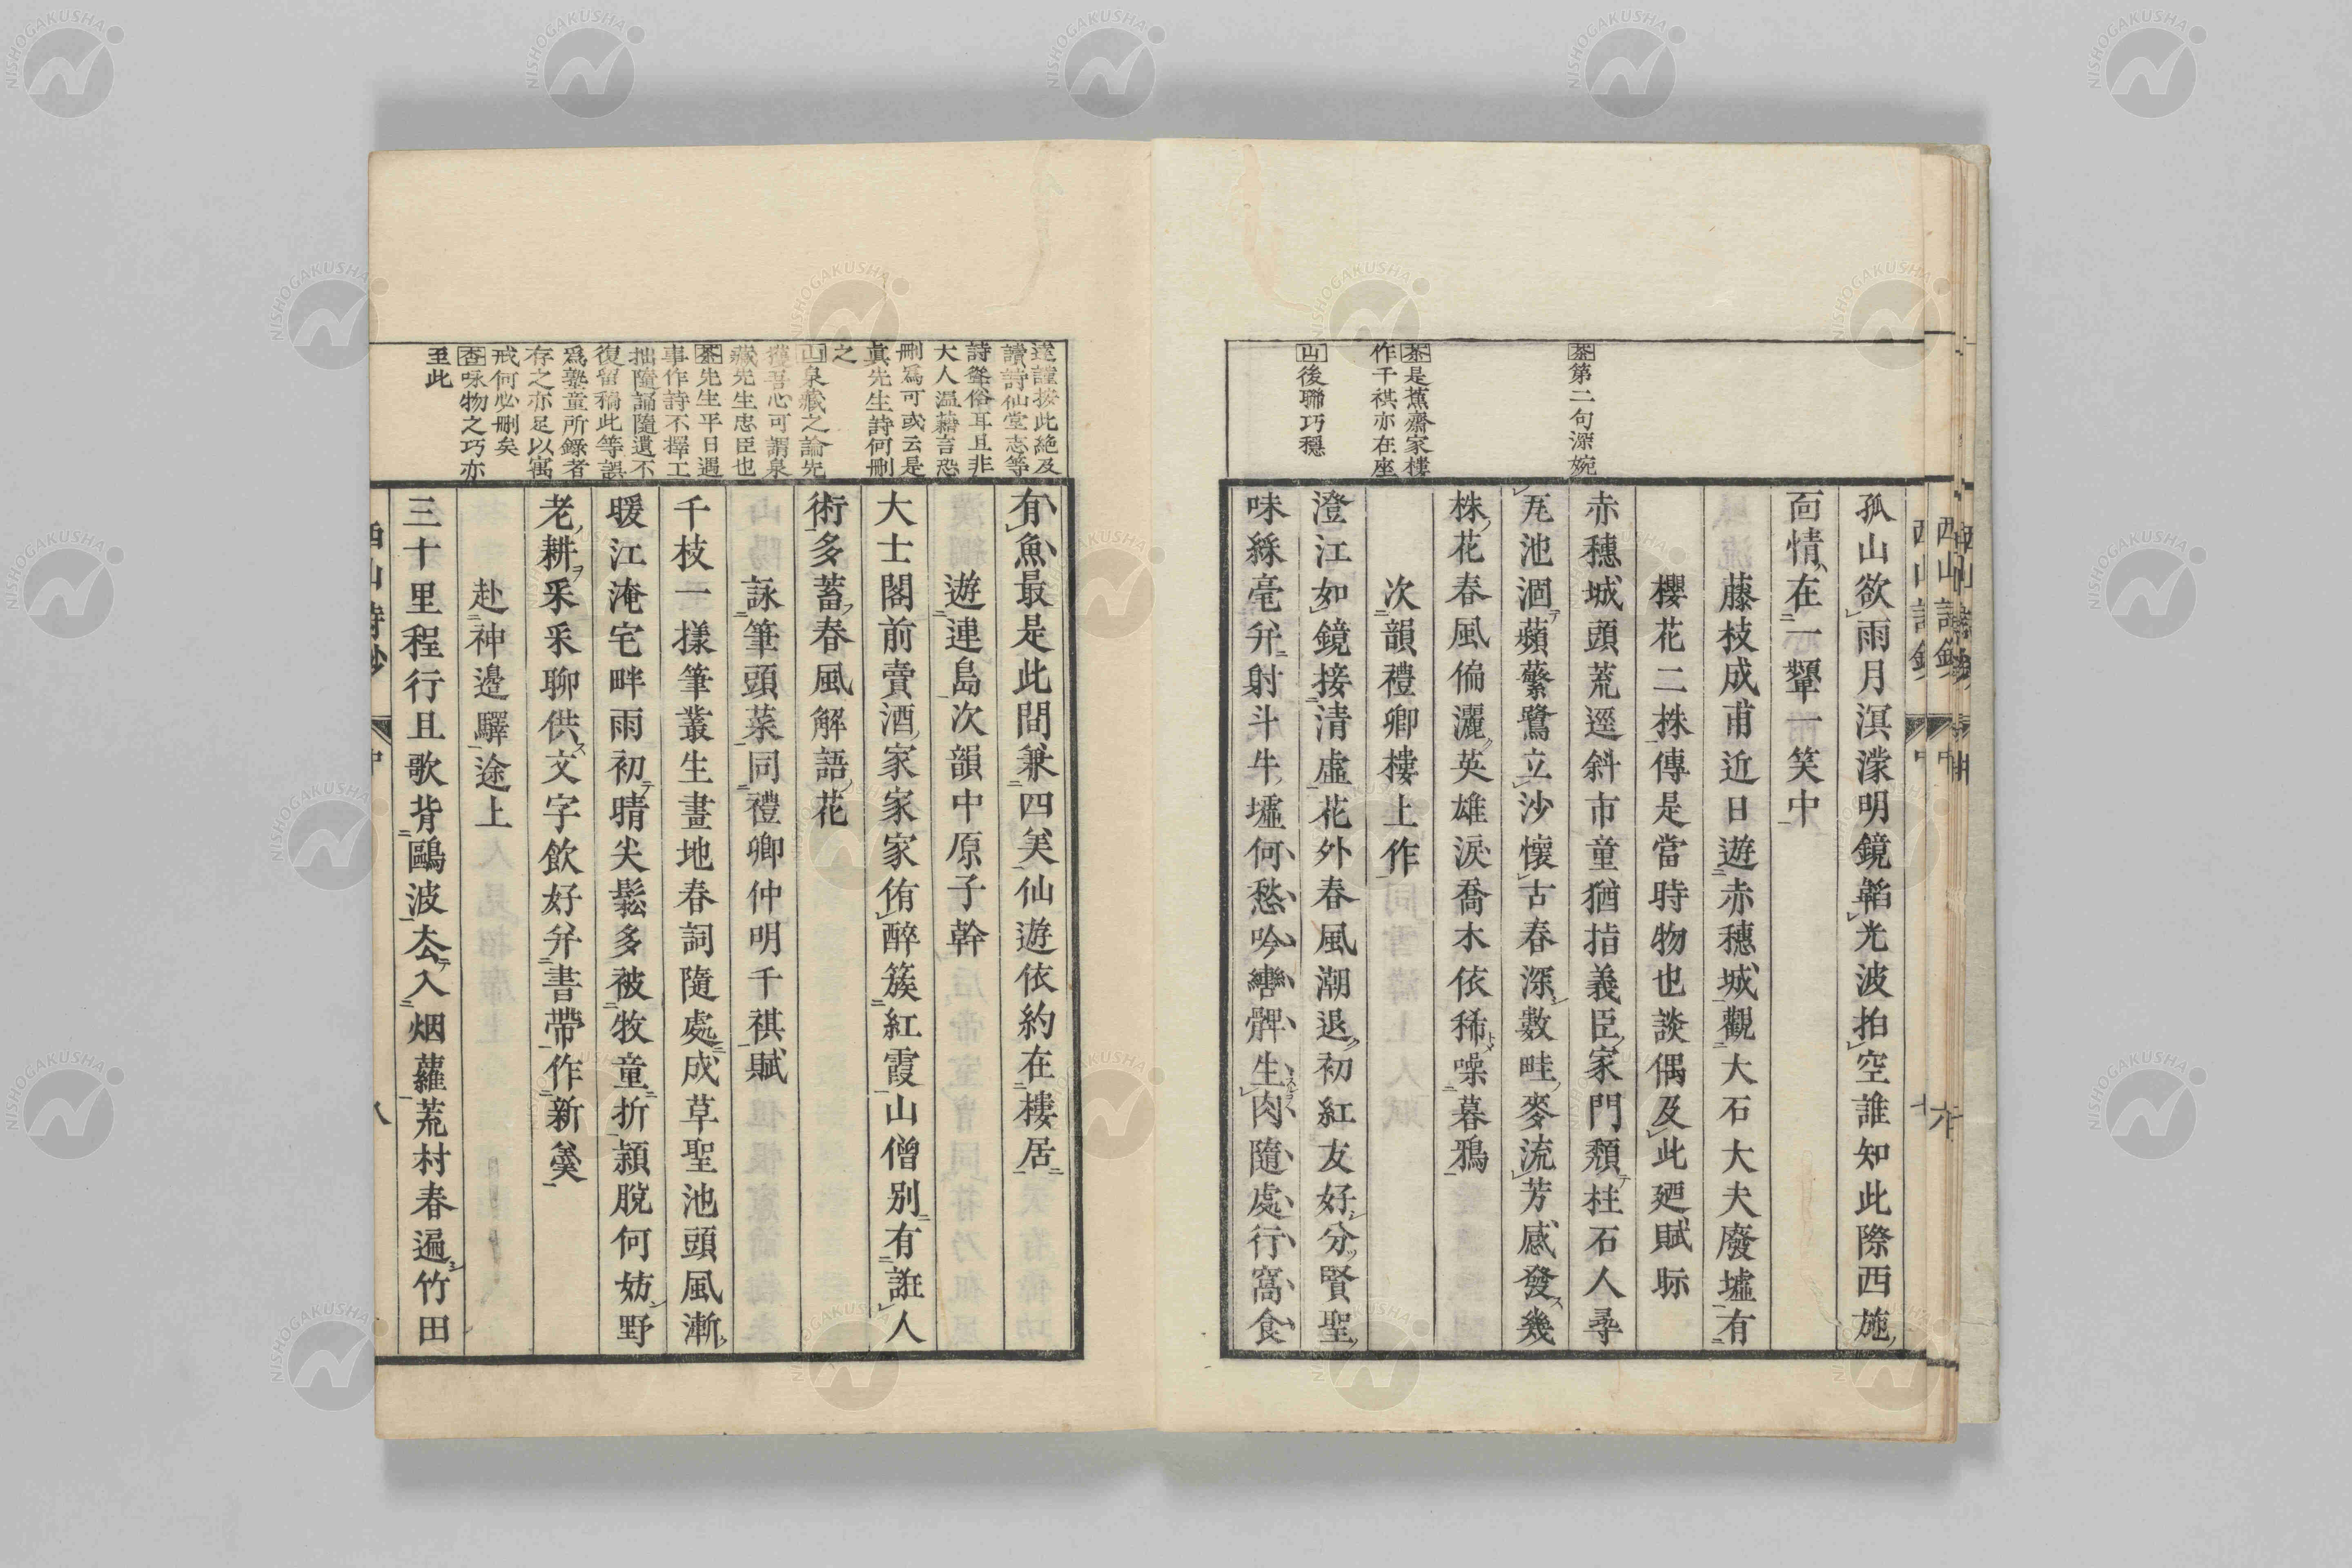 茶第二句深婉
茶是蕉齋家樓
作千祺亦在座
山後聯巧穩
孤山欲雨月溟濛明鏡韜光波拍空誰知此際西施
面情在一顰一笑中
藤枝成甫近日遊赤穗城觀大石大夫廢墟有
櫻花二株傳是當時物也談偶及此廼賦眎
赤穗城頭荒逕斜市童猶指義臣家門頽柱石人尋
瓦池涸蘋蘩鷺立沙懷古春深數畦麥流芳感發幾
株花春風偏灑英雄淚喬木依稀噪暮鴉
次韻禮卿樓上作
澄江如鏡接清虛花外春風潮退初紅友好分賢聖
味絲毫弁射斗牛墟何愁吟轡髀生肉隨處行窩食
達謹按此絶及
讀詩仙堂志等
詩聳俗耳且非
大人溫藉言恐
刪爲可或云是
眞先生詩何刪
之
山泉藏之論先
獲吾心可謂泉
藏先生忠臣也
茶先生平日遇
事作詩不擇工
拙隨誦隨遺不
復留稿此等誤
爲褻童所錄者
存之亦足以寓
戒何必刪矣
杏咏物之巧亦
至此
有魚最是此間兼四美仙遊依約在樓居
遊連島次韻中原子幹
大士閣前賣酒家家家侑醉簇紅霞山僧別有誑人
術多蓄春風解語花
詠筆頭菜同禮卿仲明千祺賦
千枝一樣筆叢生畫地春詞隨處成草聖池頭風漸
暖江淹宅畔雨初晴尖鬆多被牧童折頴脫何妨野
老耕采采聊供文字飲好弁書帶作新羹
赴神邊驛途上
三十里程行且歌背鷗波去入烟蘿荒村春遍竹田
西山詩鈔
中
八